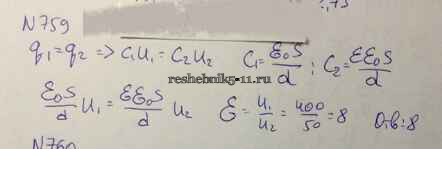 N759
q₁=q₂ => C₁U₁=C₂U₂ C₁=ε₀S/d ; C₂=εε₀S/d
reshebnik5-11.ru
ε₀S/d U₁=εε₀S/d U₂ ε=U₁/U₂=400/50=8 Отв:8
N760